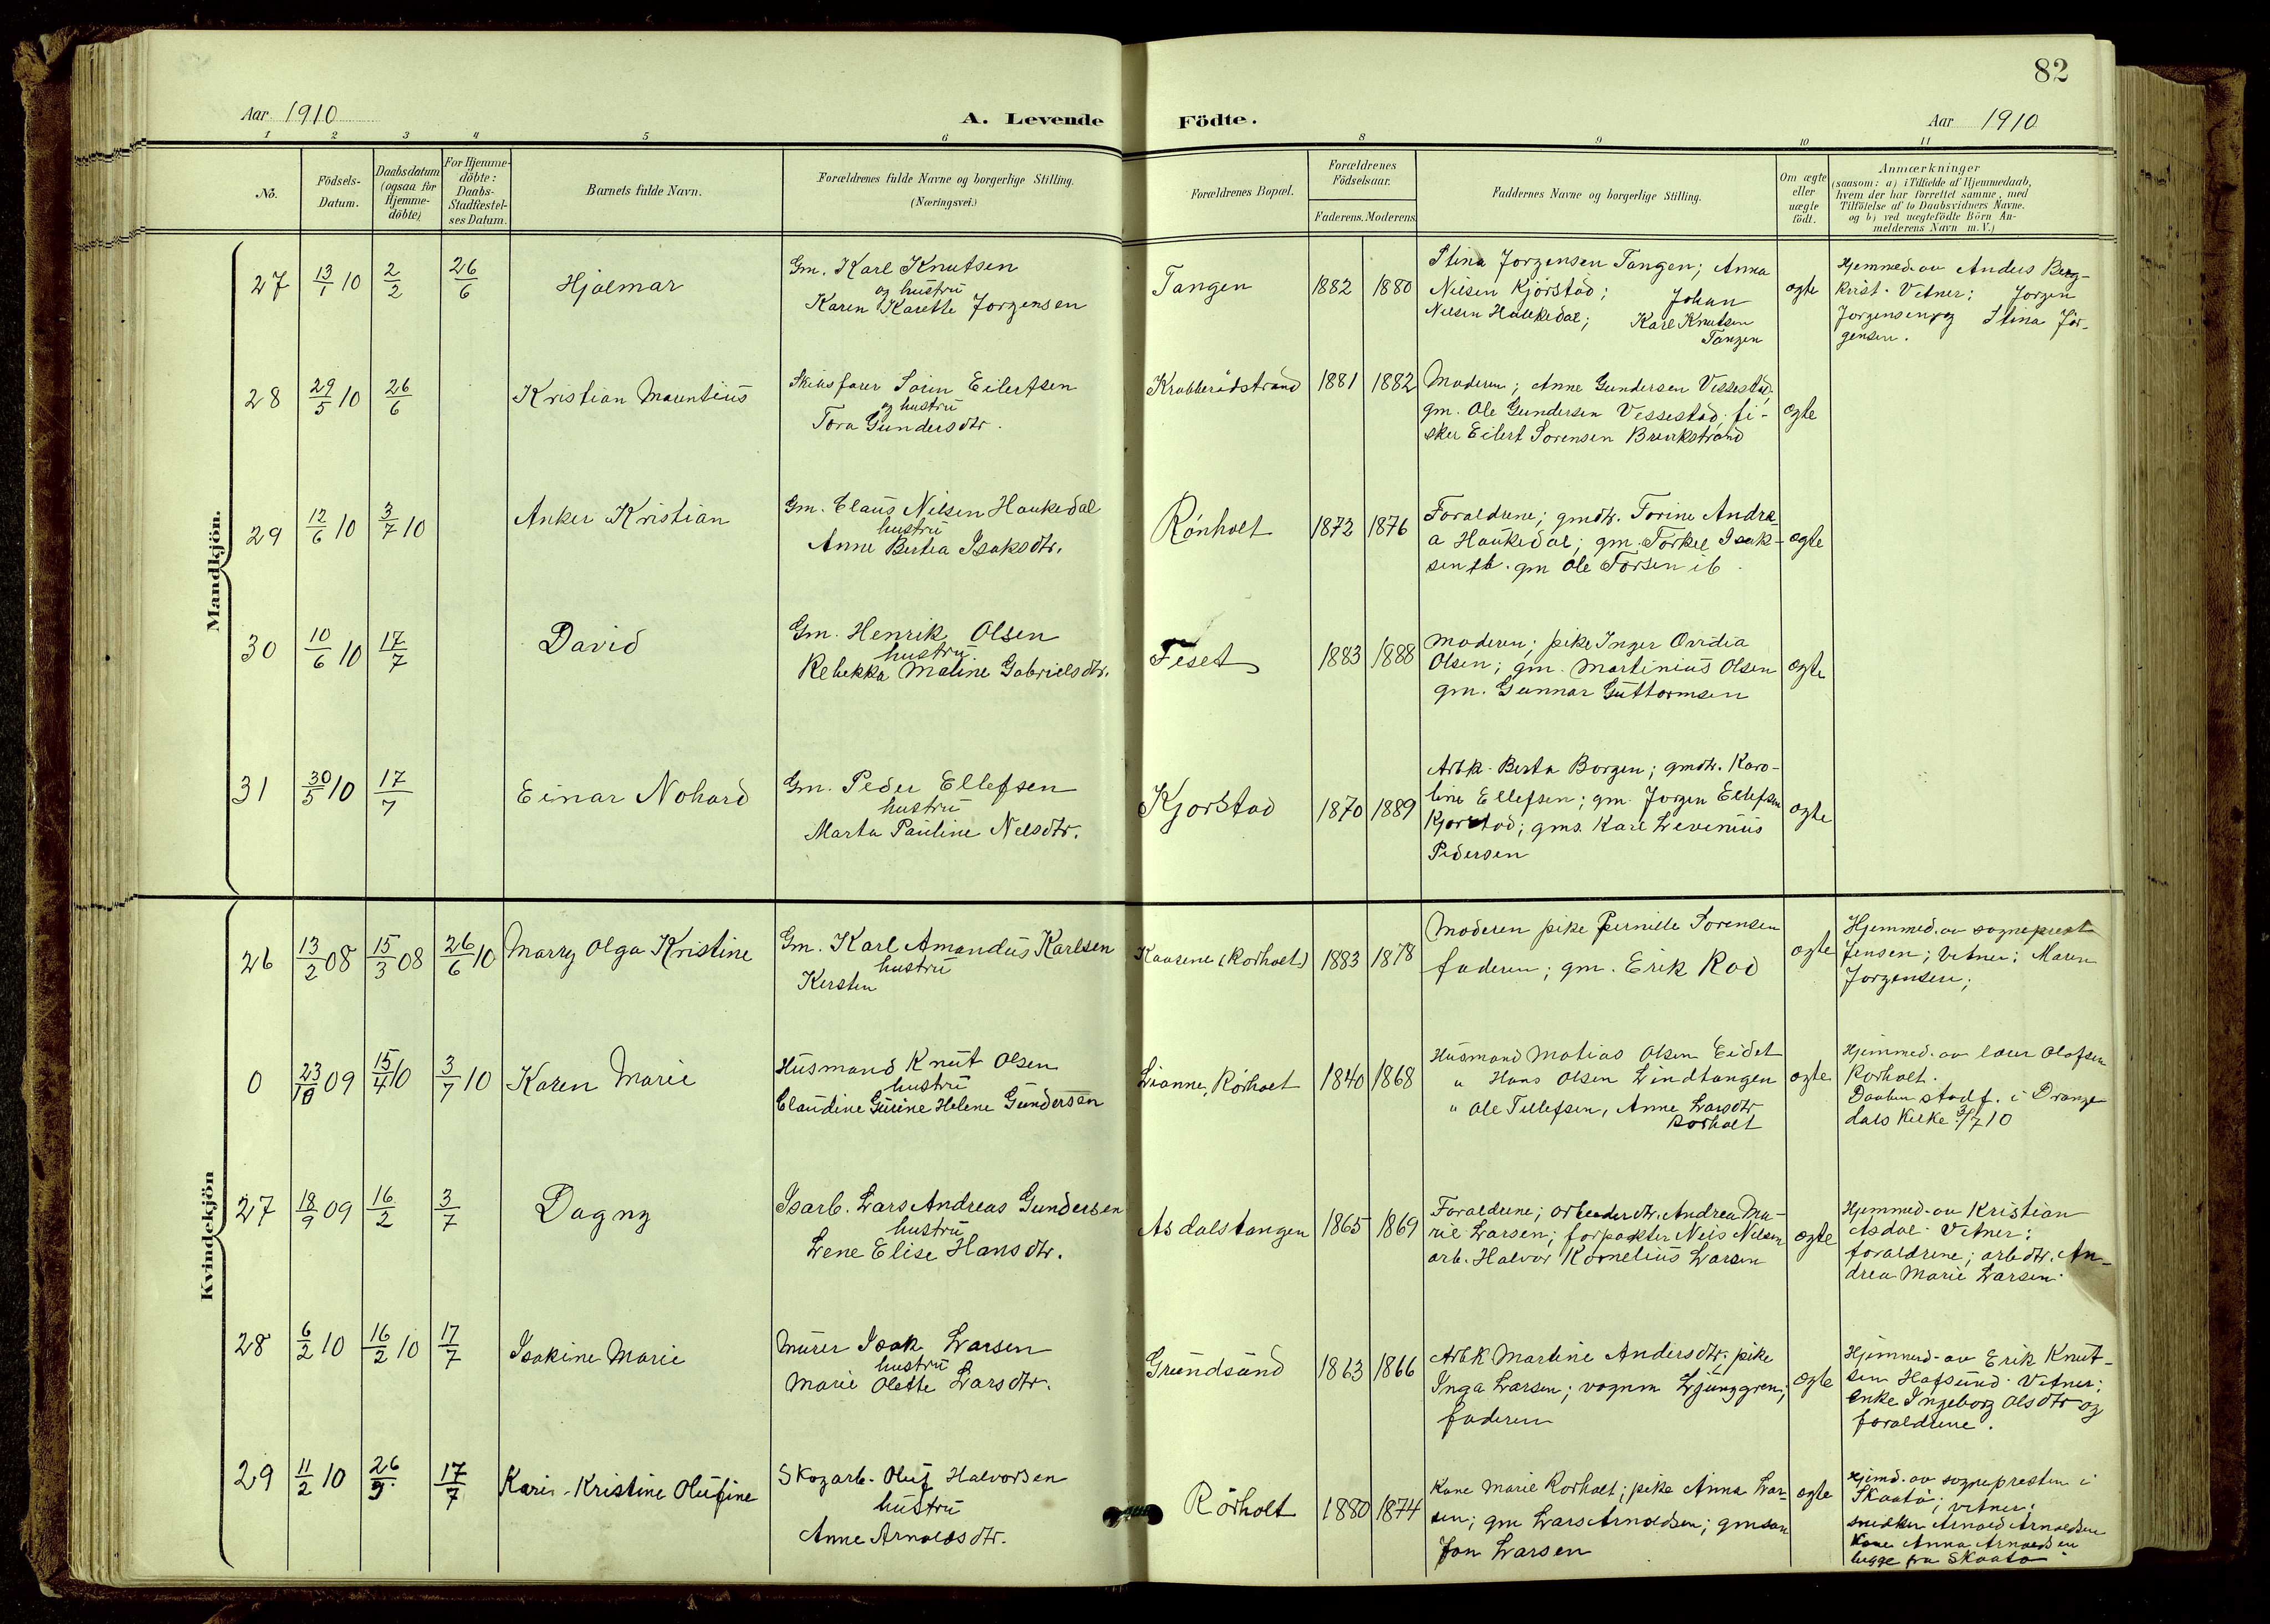 82
Aar 1910
A. Levende Födte.
Aar 1910
1 2 3 4 5 6 8 9 10 11
No.
Födsels-
Datum.
Daabsdatum
(ogsaa for
Hjemme-
döbte)
For Hjemme-
döbte:
Daabs-
Stadfæstel-
ses Datum.
Barnets fulde Navn.
Forældrenes fulde Navne og borgerlige Stilling.
(Næringsvei.)
Forældrenes Bopæl.
Forældrenes
Födselsaar.
Faderens. Moderens
Faddernes Navne og borgerlige Stilling.
Om ægte
eller
uægte
födt.
Anmærkninger
(saasom: a) i Tilfælde af Hjemmedaab,
hvem der har forrettet samme, med
Tilföielse af to Daabsvidners Navne.
og b) ved uægtefödte Börn An-
melderens Navn m. V.)
Mandkjön.
27 13/1 10 2/2 26/6 Hjalmar
Gm. Karl Knutsen
og hustru
Karen Karette Jorgensen
Tangen 1882 1880
Stina Jorgensen Tangen; Anna
Nilsen Kjorstad; Johan
Nilsen Haukedal; Karl Knutsen
Tangen
ægte
Hjemmed. av Anders Berg-
Jorgen
Jorgensen og Stina Jör-
gensen.
28 29/5 10 26/6 Kristian Marentius
Skibsfører Sorin Eilertsen
og hustru
Tora Gundersdtr.
Krabberødstrand 1881 1882
Moderen; Anne Gundersen Vissestad;
gm. Ole Gundersen Vissestad; fi-
sker Eilert Sorensen
ægte
29 12/6 10 3/7 10 Anker Kristian
Gm. Claus Nilsen Haukedal
hustru
Anne Bertea Isaksdtr.
Rönholt 1872 1876
Foraldrene; gmdtr. Torine Andre-
a Haukedal; gm. Torkel Isak-
sen ib. gm Ole Torsen ib.
ægte
30 10/6 10 17/7 David
Gm. Henrik Olsen
hustru
Rebekka Maline Gabrielsdtr.
Feset 1883 1888
Moderen; pike Inger Ovidia
Olsen; gm. Martinius Olsen
gm. Gunnar Guttormsen
ægte
31 30/5 10 17/7 Einar Nohard
Gm. Peder Ellefsen
hustru
Marta Pauline Nelsdtr.
Kjorstad 1870 1889
Arbk. Berta Borgen; gmdtr. Karo-
line Ellefsen; gm. Jorgen Ellefsen
Kjorstad; gms. Karl Levinius
Pedersen
ægte
Kvindekjön
26 13/2 08 15/3 08 26/6 10 Marry Olga Kristine
Gm. Karl Amandus Karlsen
hustru
Kersten
Kaasene (Rorholt) 1883 1878
Moderen pike Pernille Sorensen
faderen; gm. Erik Rod
ægte
Hjemmed. av sogneprest
Jensen; Vetner: Maren
Jorgensen;
0 23/10 09 15/4 10 3/7 10 Karen Marie
Husmand Knut Olsen
hustru
Claudine Gurine Helene Gundersen
Lianne, Rörholt 1840 1868
Husmand Matias Olsen Eidet
" Hans Olsen Lindtangen
" Ole Tellefsen, Anne Larsdtr
Rorholt
ægte
Hjemmed. av lærer Olofsen
Rorholt.
Daaben stadf. i Drange-
dals Kirke 3/7 10
27 18/9 09 16/2 3/7 Dagny
Isarb. Lars Andreas Gundersen
hustru
Lene Elise Hansdtr.
Asdalstangen 1865 1869
Foraldrene; arbeiderdtr. Andrea Ma-
rie Larsen; forpakter Neis Nilsen
arb. Halvor Kornelius Larsen
ægte
Hjemmed. av Kristian
Asdal. Vetner:
foraldrene; arbdtr. An-
drea Marie Larsen.
28 6/2 10 16/2 10 17/7 Isakine Marie
Murer Isak Larsen
hustru
Marie Olette Larsdtr.
Grundsund 1863 1866
Arbk Martine Andersdtr; pike
Inga Larsen; vognm Ljunggren;
faderen
ægte
Hjemmed. av Erik Knut-
sen Hafsund. Vetner:
Enke Ingeborg Olsdtr og
foraldrene.
29 11/2 10 26/3 17/7 Karin Kristine Olufine
Skogarb. Oluf Halvorsen
hustru
Anne Arnoldsdtr.
Rörholt 1880 1874
Kone Marie Rorholt; pike Anna Lar-
sen; gm Lars Arnoldsen; gmsøn
Jon Larsen
ægte
Hjemd. av sognepresten i
Skaatö; vetner:
snedker Arnold Arnoldsen
Kone Anna Arnoldsen
begge fra Skaatö